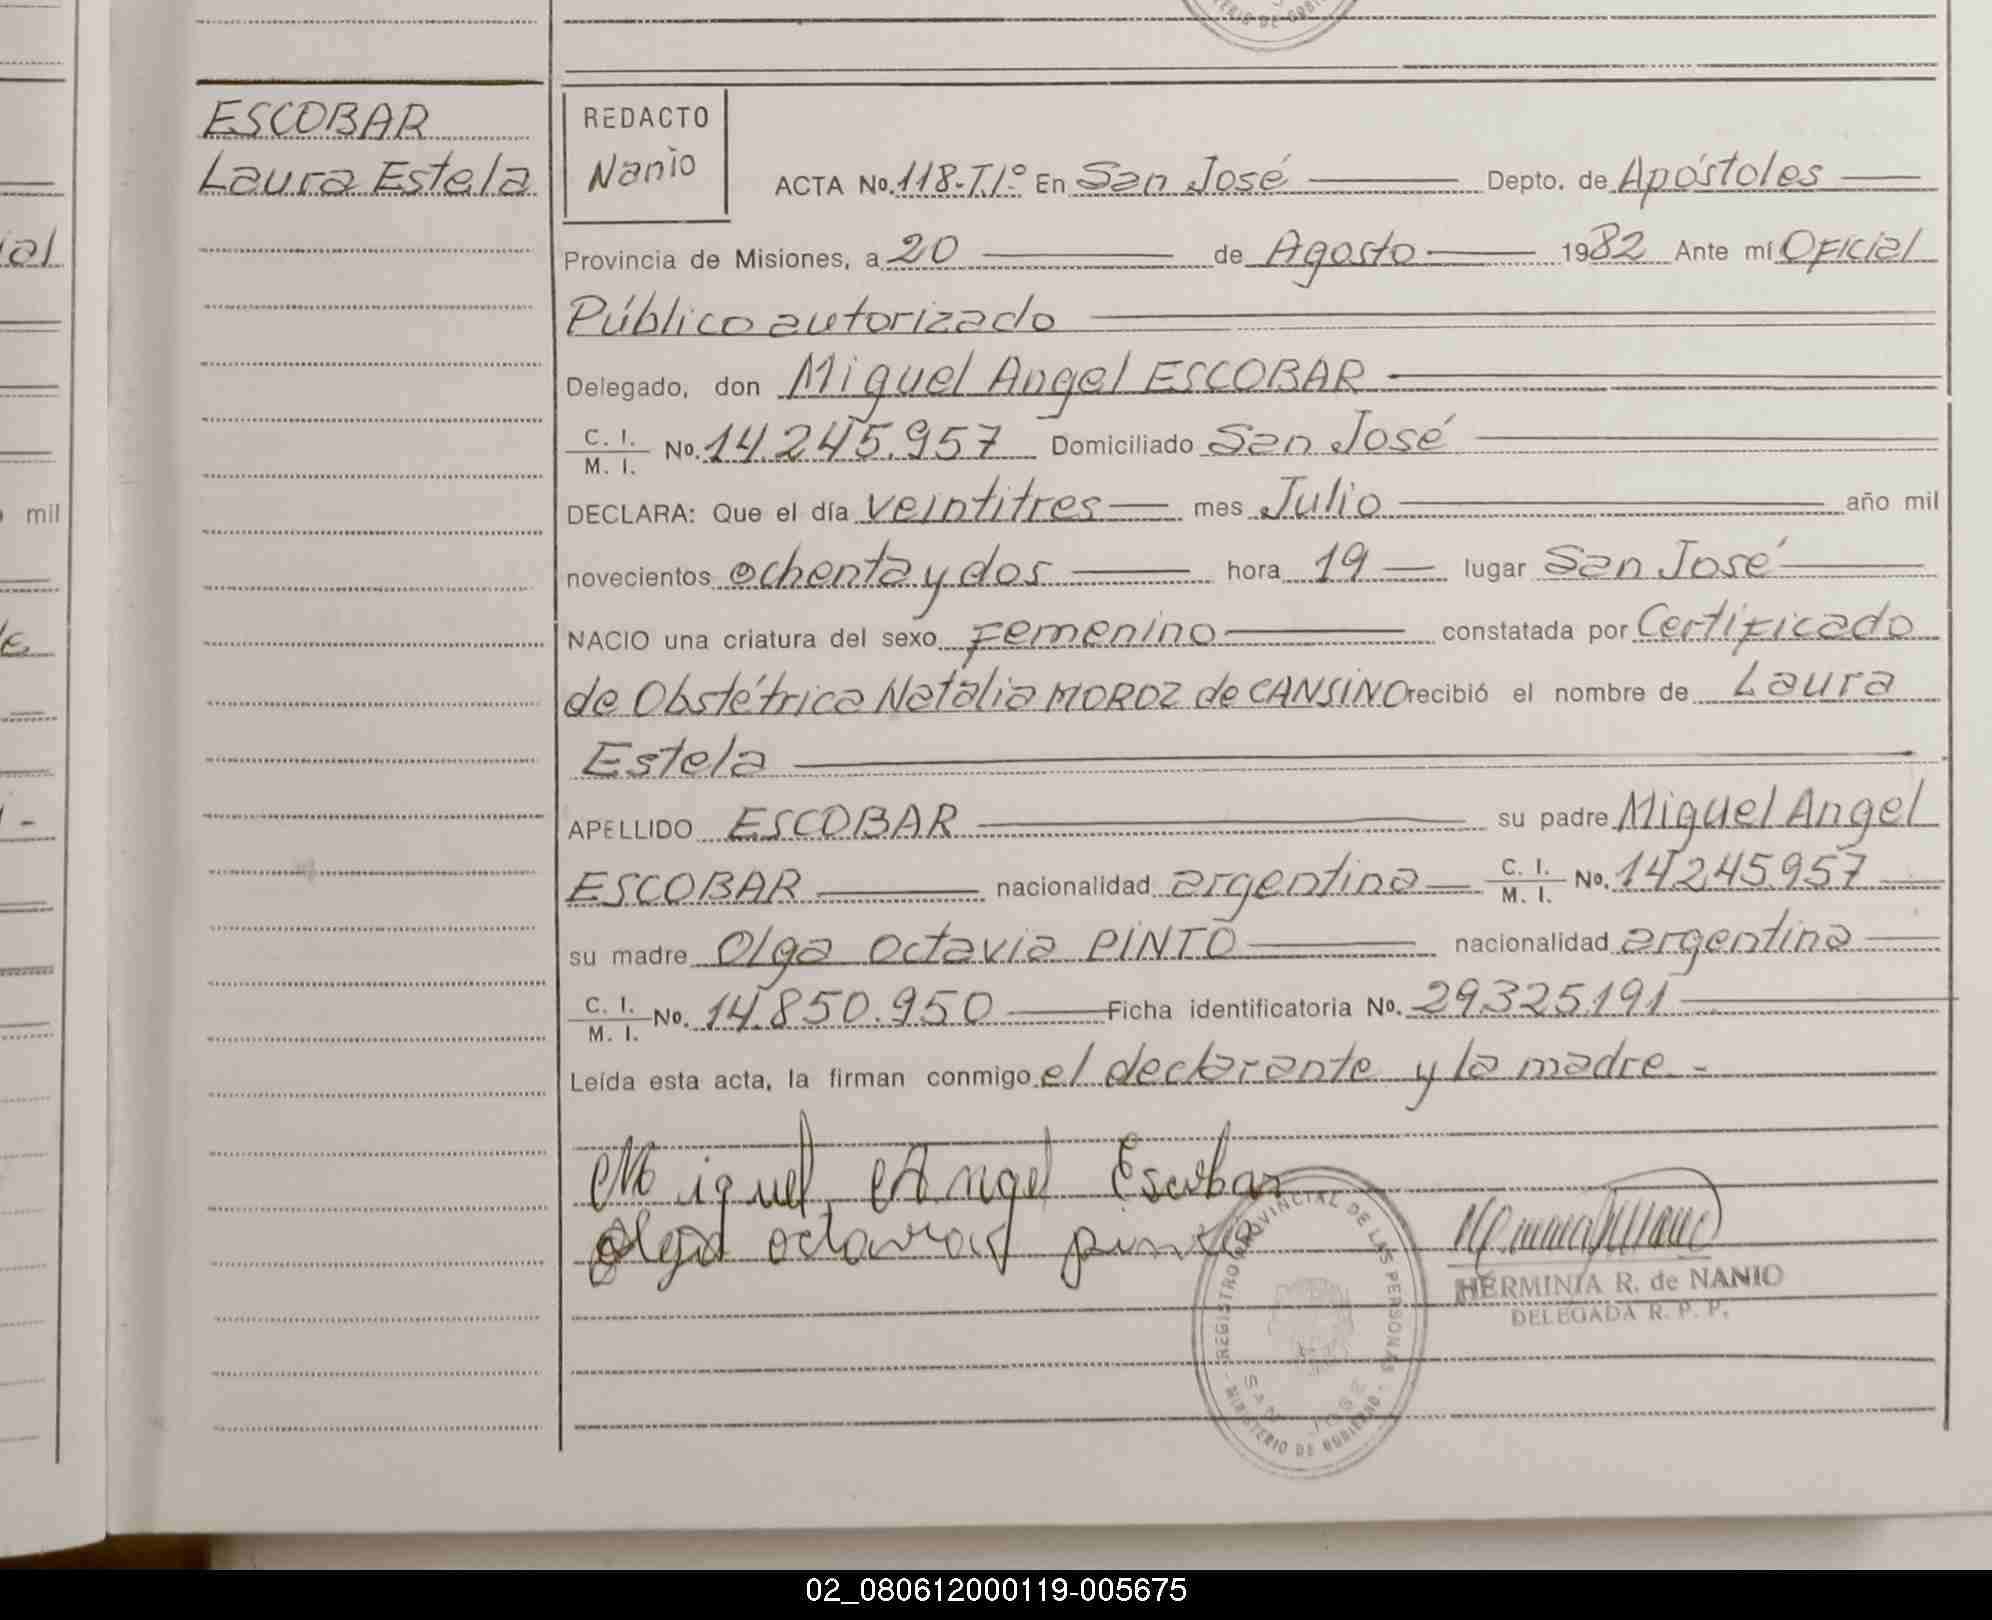 ERIO DE GOBI
ESCOBAR
Laura Estela
REDACTO
Nanio
ACTA No. 118-T.I° En San José Depto. de Apóstoles
Provincia de Misiones, a 20 de Agosto 1982 Ante mí Oficial
Público autorizado
Delegado, don Miguel Angel ESCOBAR
C. I. / M. I. No. 14.245.957 Domiciliado San José
DECLARA: Que el día veintitres mes Julio año mil
novecientos ochenta y dos hora 19 lugar San José
NACIO una criatura del sexo femenino constatada por Certificado
de Obstétrica Natalia MOROZ de CANSINO recibió el nombre de Laura
Estela
APELLIDO ESCOBAR su padre Miguel Angel
ESCOBAR nacionalidad argentina C. I. / M. I. No. 14.245.957
su madre Olga Octavia PINTO nacionalidad argentina
C. I. / M. I. No. 14.850.950 Ficha identificatoria No. 29.325.191
Leída esta acta, la firman conmigo el declarante y la madre.-
Miguel Angel Escobar
Olga octavia pinto
REGISTRO PROVINCIAL DE LAS PERSONAS
SAN JOSE
MINISTERIO DE GOBIERNO
HERMINIA R. de NANIO
DELEGADA R. P. P.
ial
mil
02_080612000119-005675